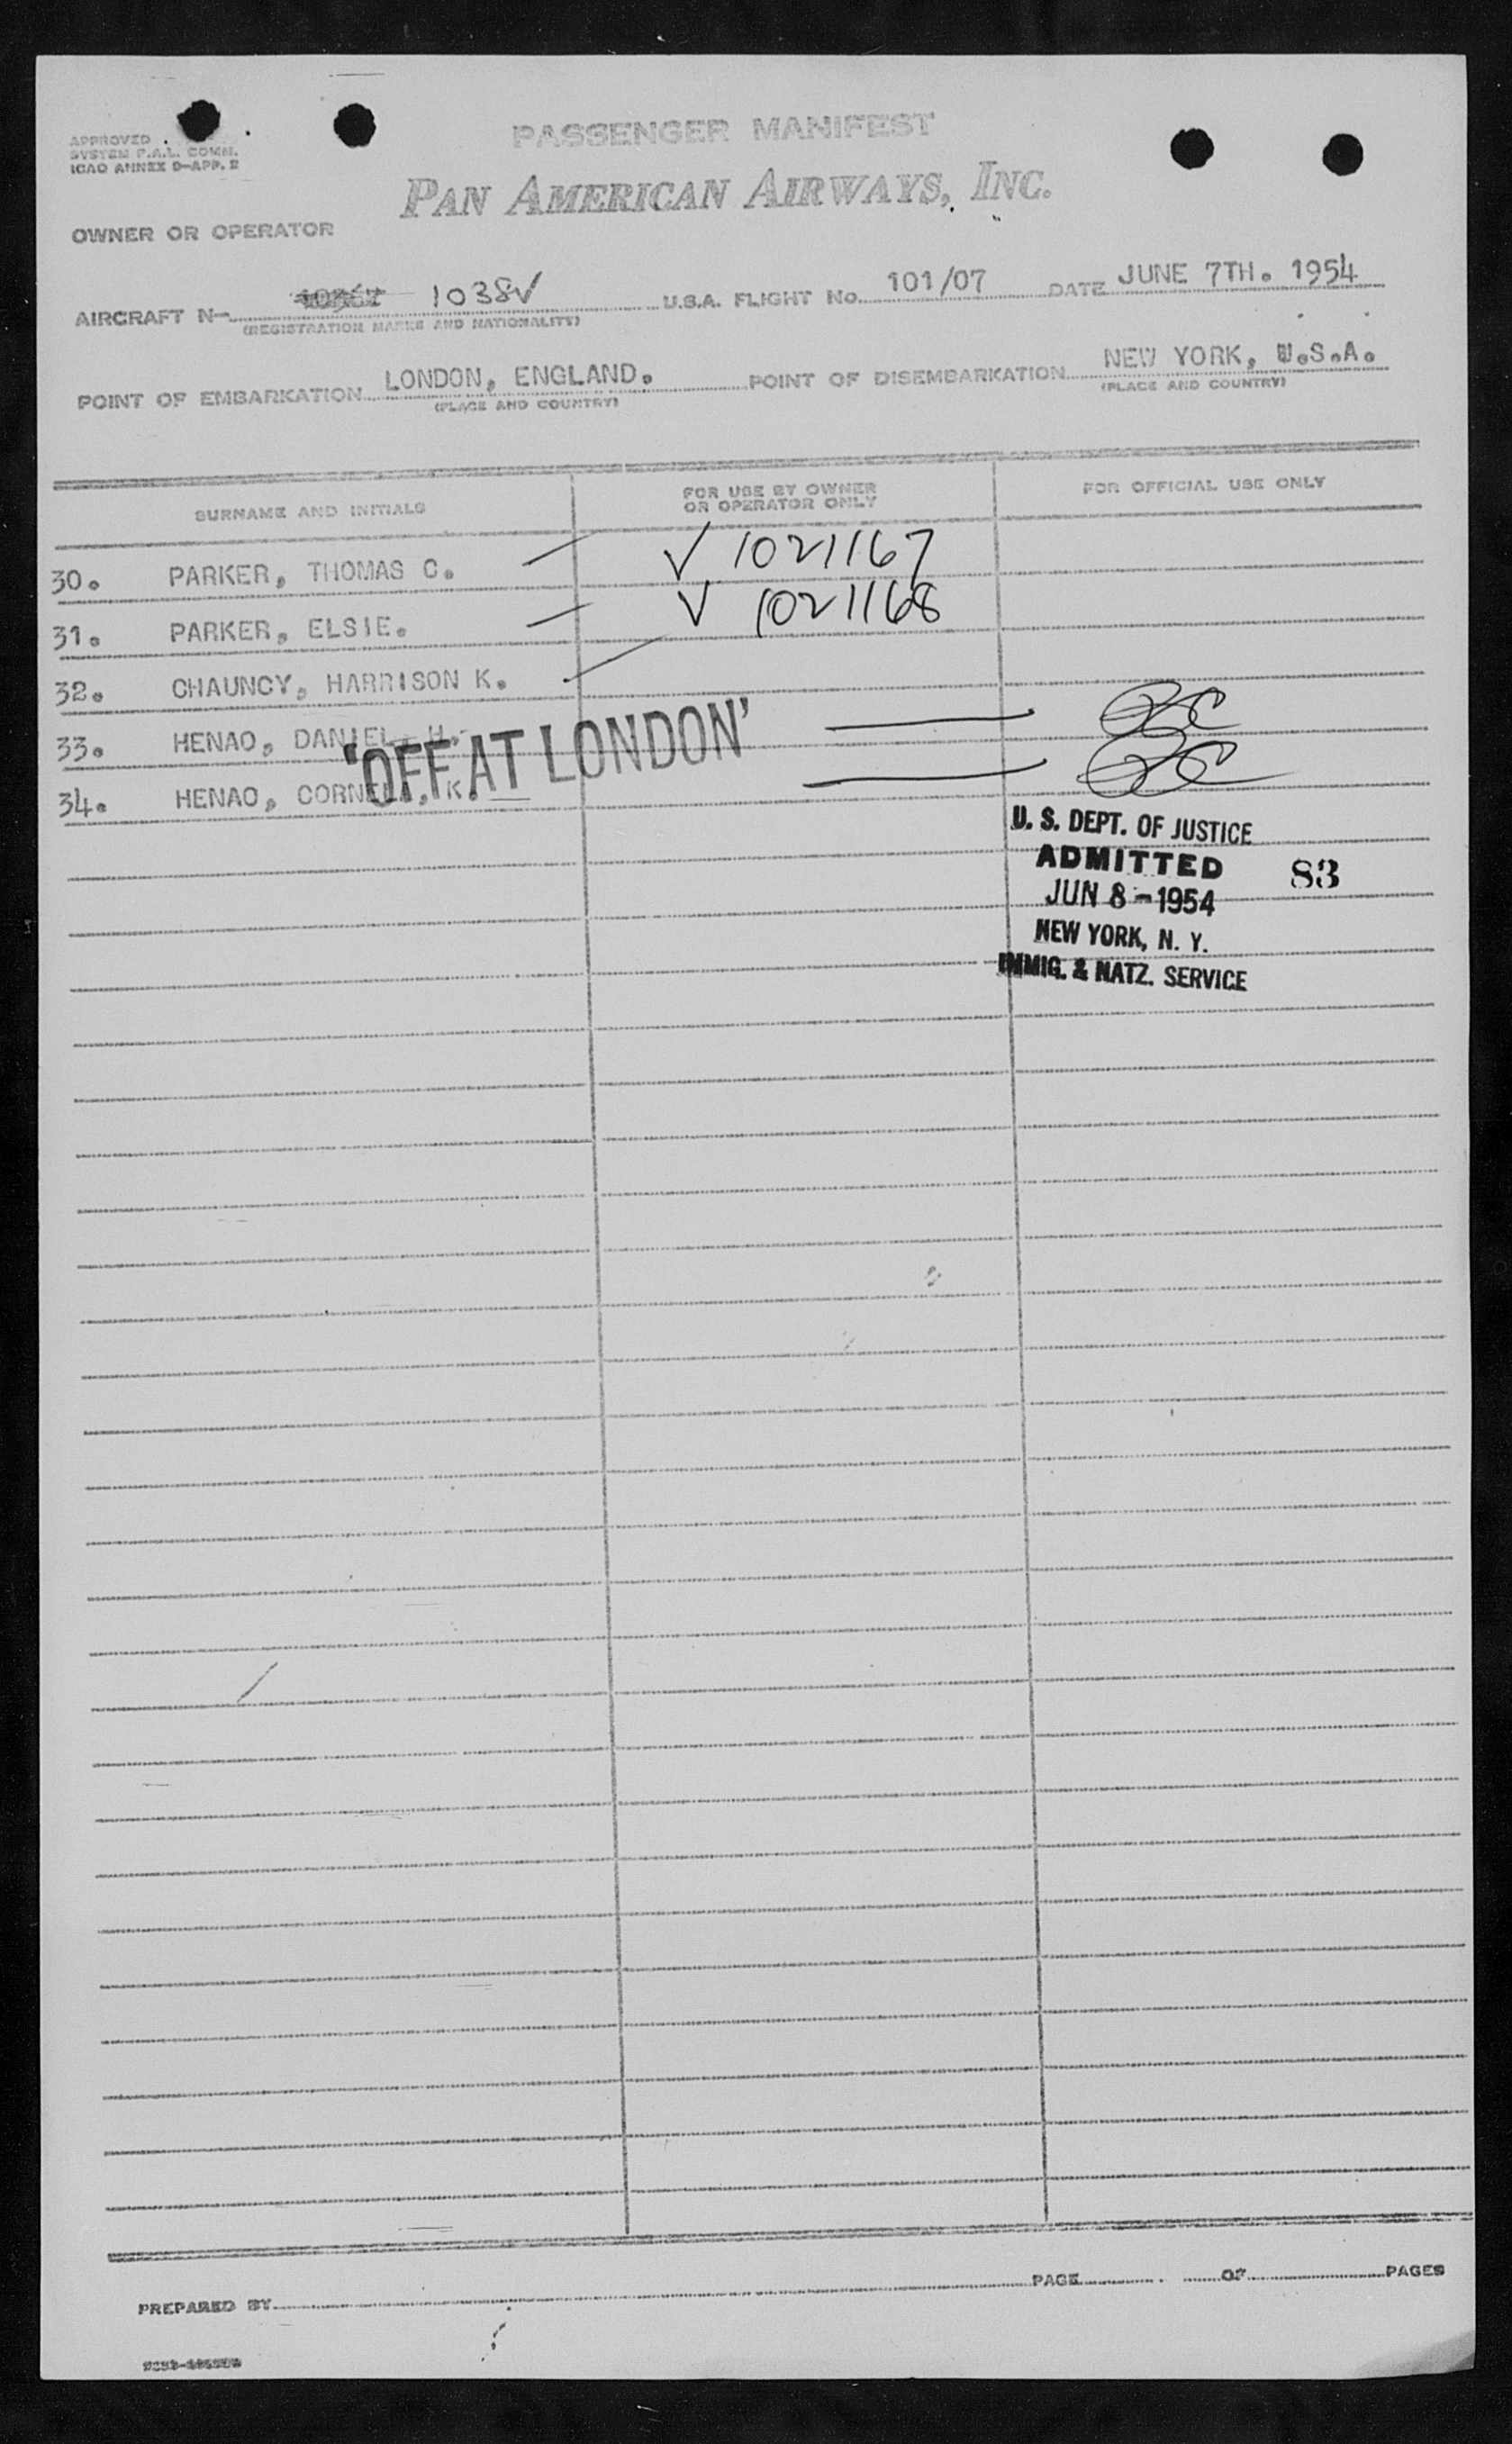 APPROVED
SYSTEM F.A.L. COMM.
ICAO ANNEX 9-APP. 2
PASSENGER MANIFEST
PAN AMERICAN AIRWAYS, INC.
OWNER OR OPERATOR
AIRCRAFT N- 1038V U.S.A. FLIGHT No. 101/07 DATE JUNE 7TH. 1954
(REGISTRATION MARKS AND NATIONALITY)
POINT OF EMBARKATION LONDON, ENGLAND. POINT OF DISEMBARKATION NEW YORK, U.S.A.
(PLACE AND COUNTRY) (PLACE AND COUNTRY)
SURNAME AND INITIALS FOR USE BY OWNER OR OPERATOR ONLY FOR OFFICIAL USE ONLY
30. PARKER, THOMAS C. √ 1021167
31. PARKER, ELSIE. √ 1021168
32. CHAUNCY, HARRISON K.
33. HENAO, DANIEL H.
'OFF AT LONDON'
34. HENAO, K.
U. S. DEPT. OF JUSTICE
ADMITTED 83
JUN 8 - 1954
NEW YORK, N. Y.
IMMIG. & NATZ. SERVICE
PREPARED BY PAGE OF PAGES